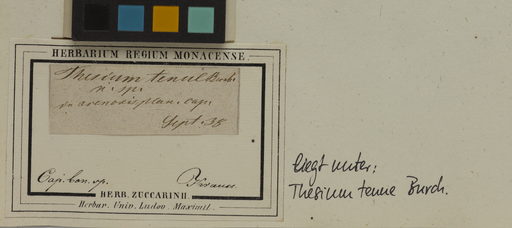 HERBARIUM REGIUM MONACENSE.
Thesium tenue Burch.
n. sp.
in arenosis plan. cap.
Sept. 38
Cap. bon. sp.
HERB. ZUCCARINII.
Herbar. Univ. Ludov. Maximil.
liegt unter:
Thesium tenue Burch.